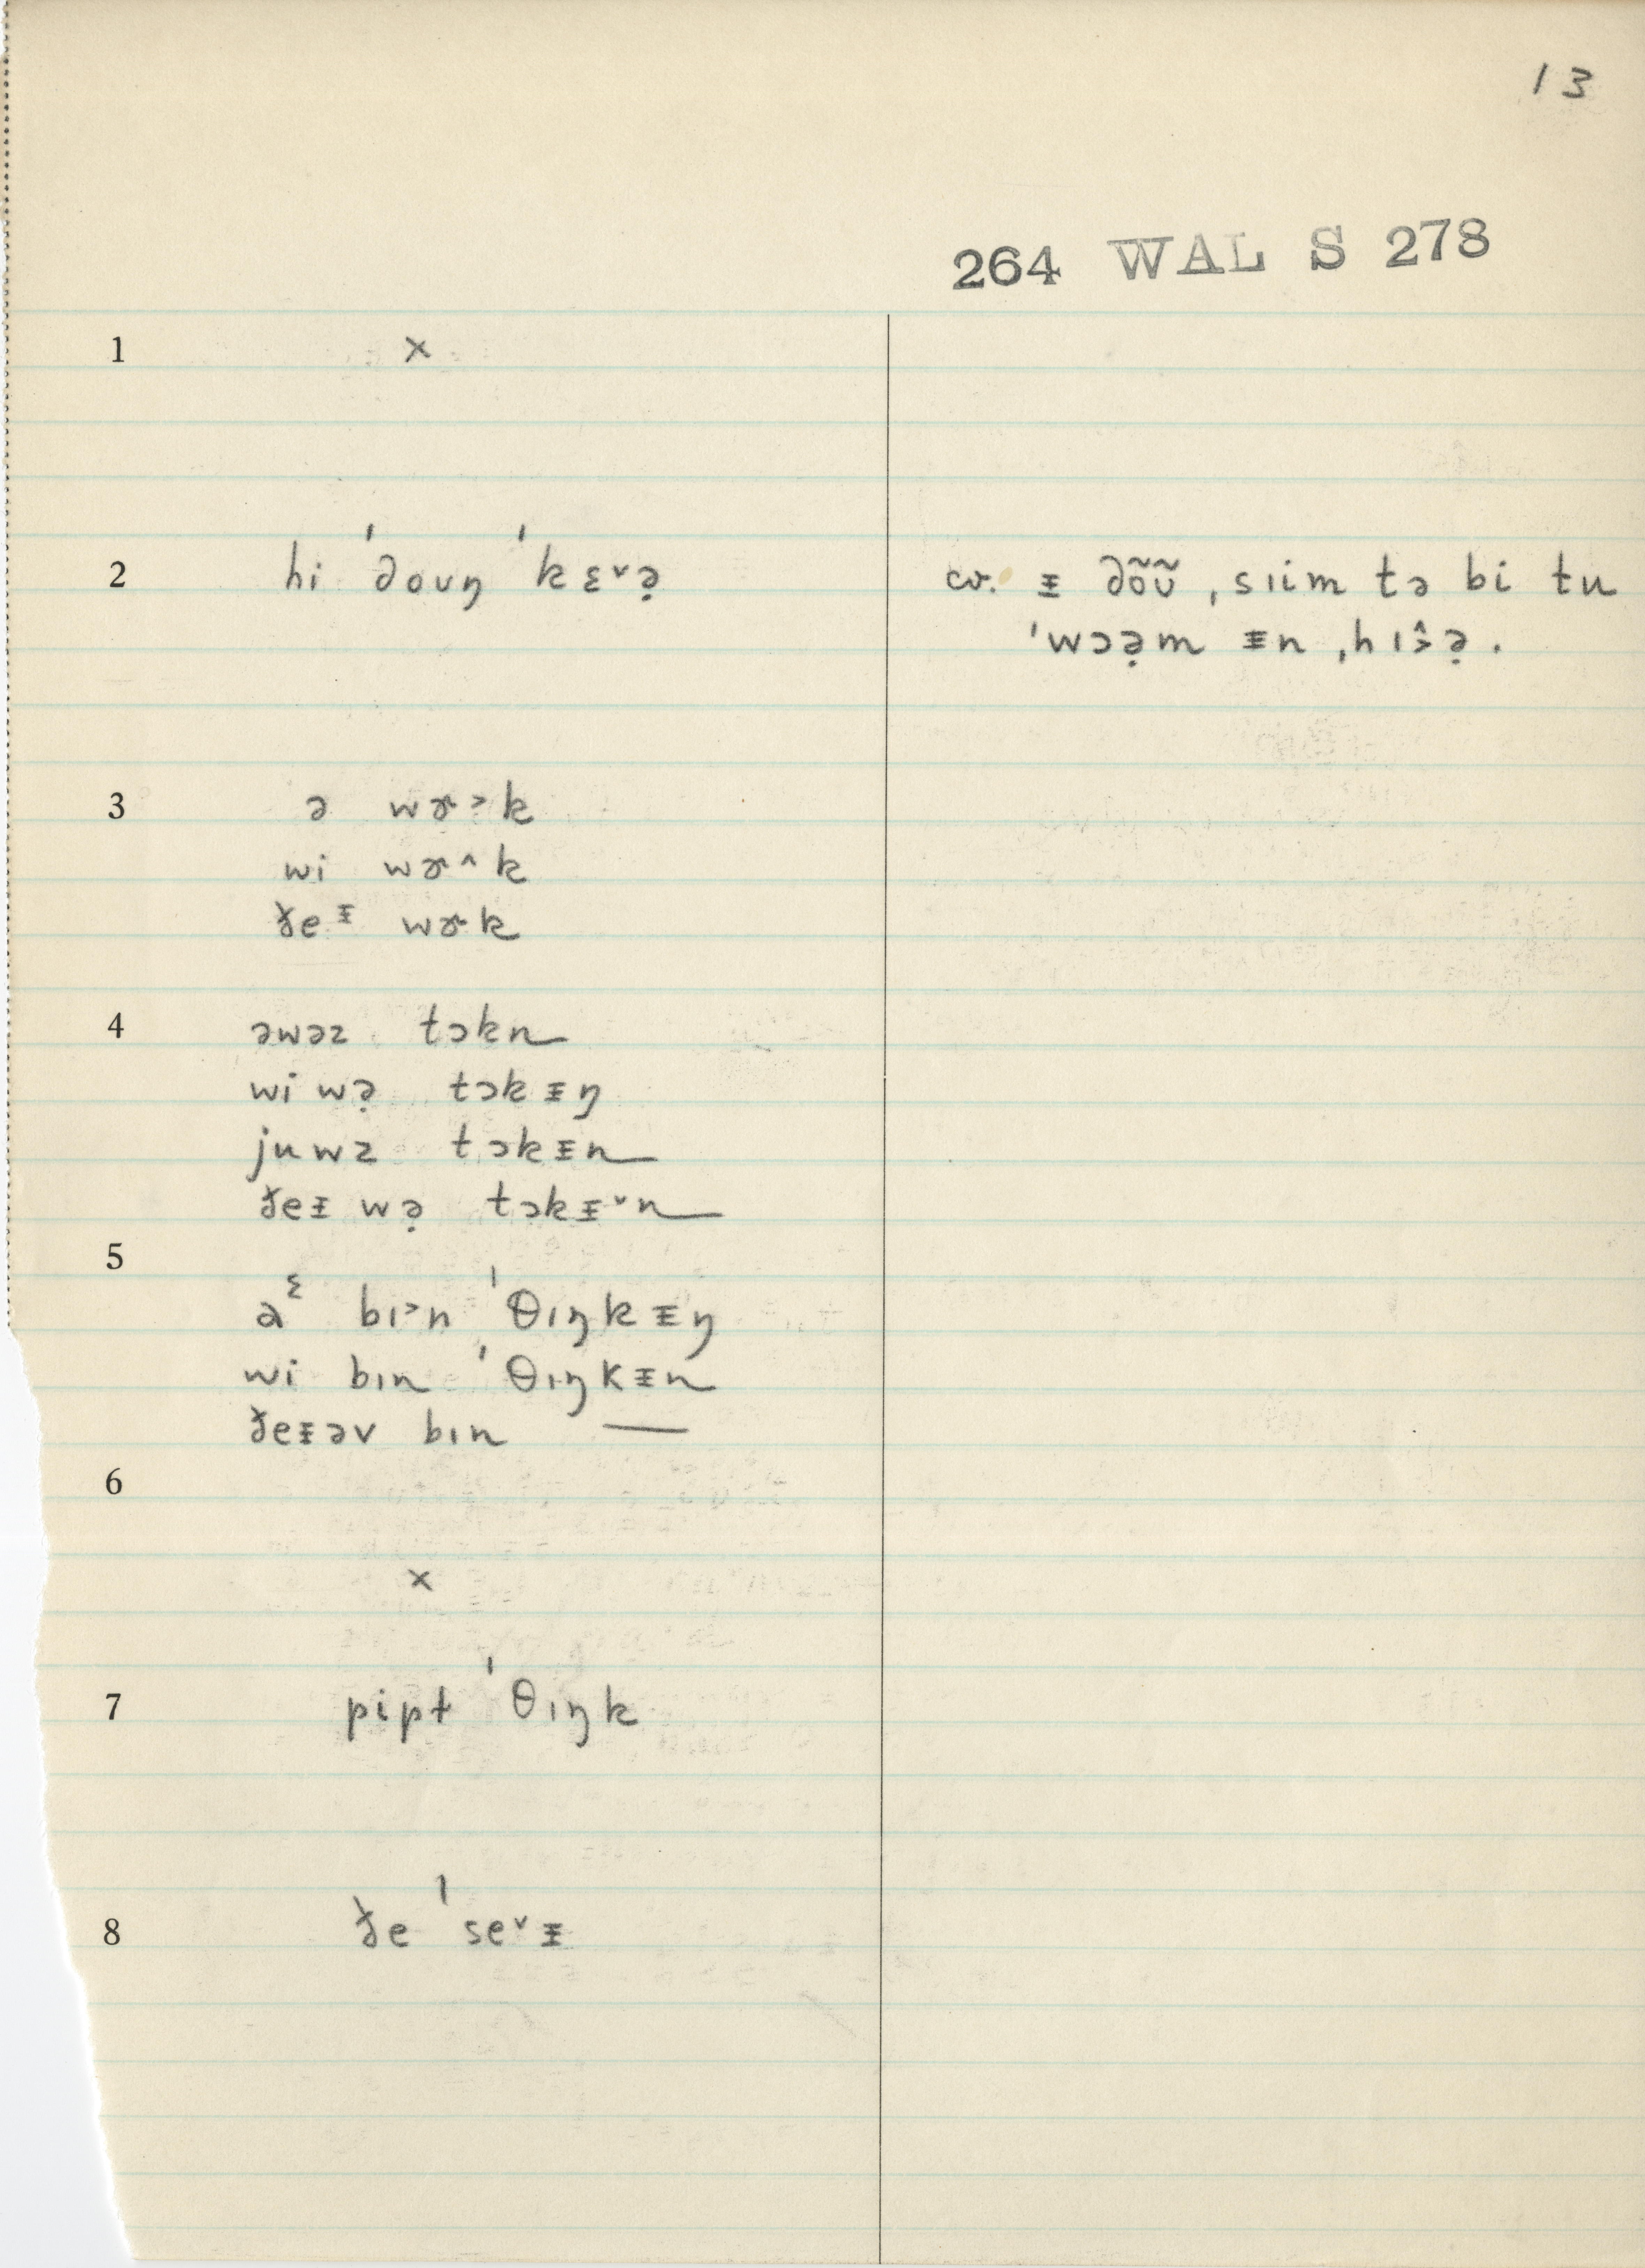 13
264 WAL S 278
1 ×
2 hi ˈdouŋ ˈkɛ˅ə̣
cv. ᵻ dõũ ˌsɪim tə bi tu
ˈwɔə̣m ᵻn ˌhɪ˄˃ə̣.
3 ə wɚ˃k
wi wɚ˄k
ðeᵻ wɚk
4 əwəz tɔkn
wi wə̣ tɔkᵻŋ
juwz tɔkᵻn
ðeᵻ wə̣ tɔkᵻ˅n
5
aᵋ bɪ˃n ˈθɪŋkᵻŋ
wi bɪn ˈθɪŋkᵻn
ðeᵻəv bɪn —
6
×
7 pipt ˈθɪŋk
8 ðe ˈse˅ᵻ